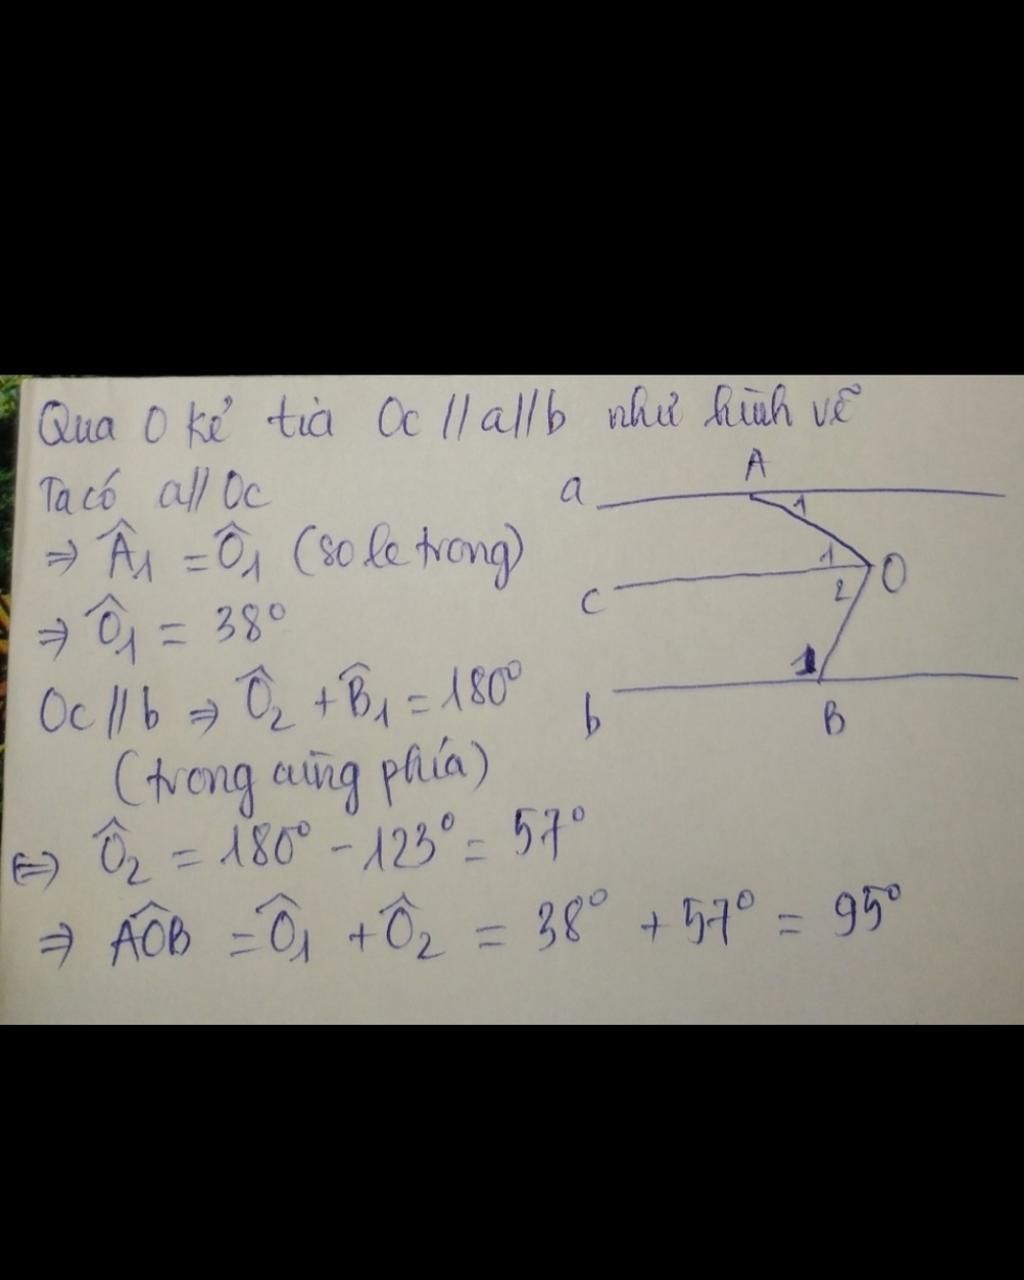 Qua O kẻ tia Oc // a // b như hình vẽ
Ta có a // Oc
⇒ Â₁ = Ô₁ (so le trong)
⇒ Ô₁ = 38°
Oc // b ⇒ Ô₂ + B̂₁ = 180°
(trong cùng phía)
⇔ Ô₂ = 180° - 123° = 57°
⇒ AÔB = Ô₁ + Ô₂ = 38° + 57° = 95°
A
a
1
1
O
c
2
1
b
B